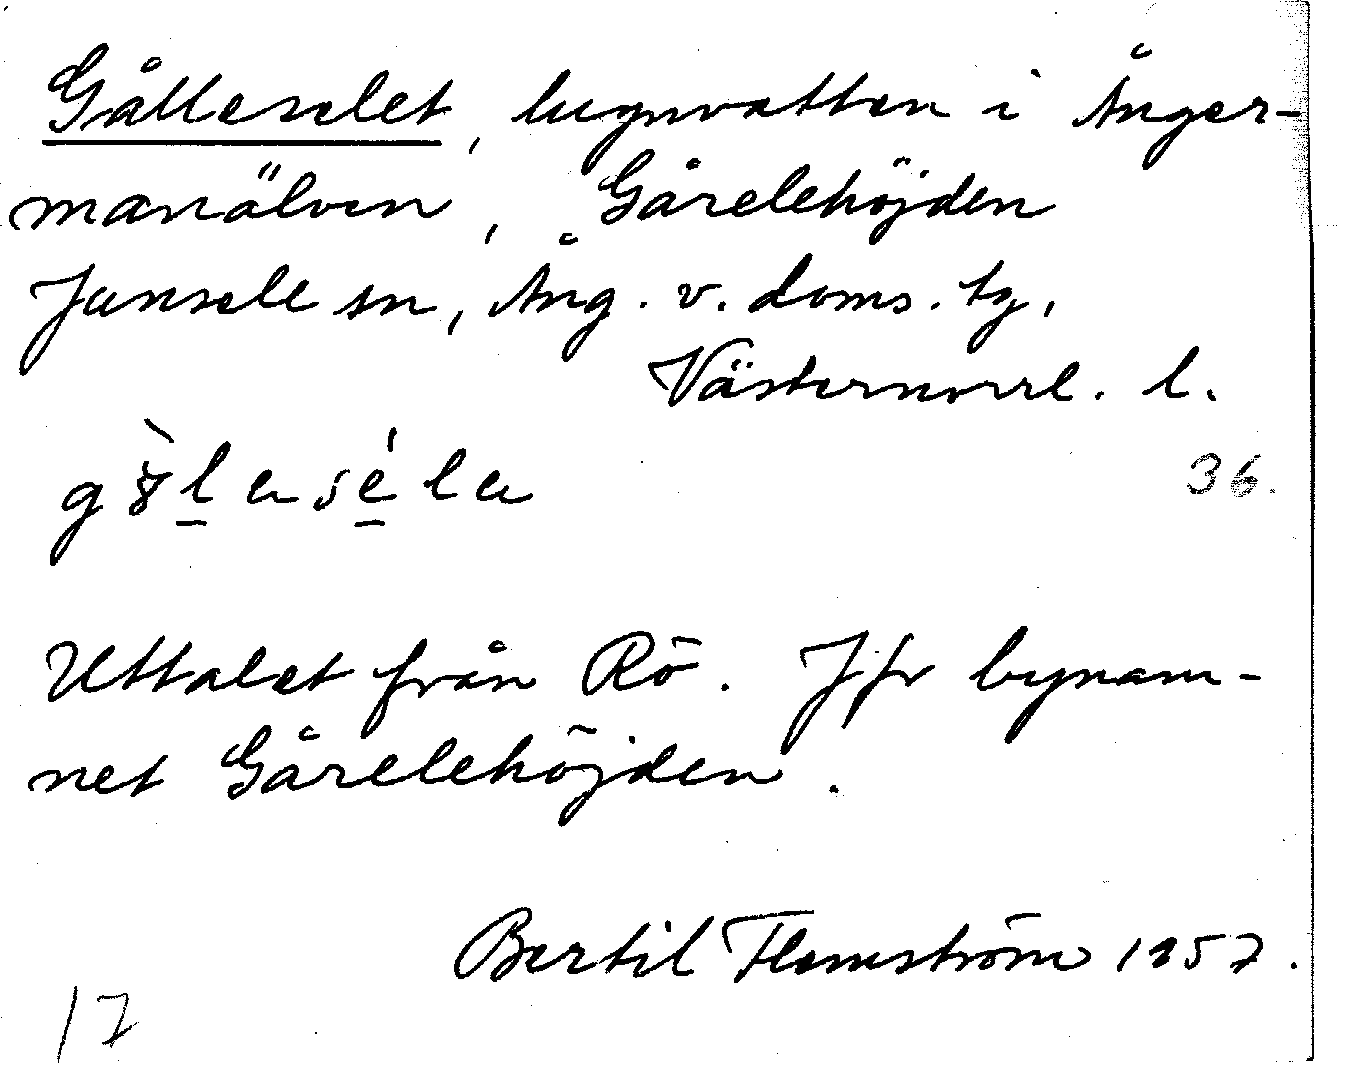 Gålleselet, lugnvatten i Ånger-
manälven, Gårelehöjden
Junsele sn, Ång. v. doms. tg,
Västernorrl. l.
36.
Uttalet från Rö. Jfr bynam-
net Gårelehöjden.
Bertil Flemström 1957.
17